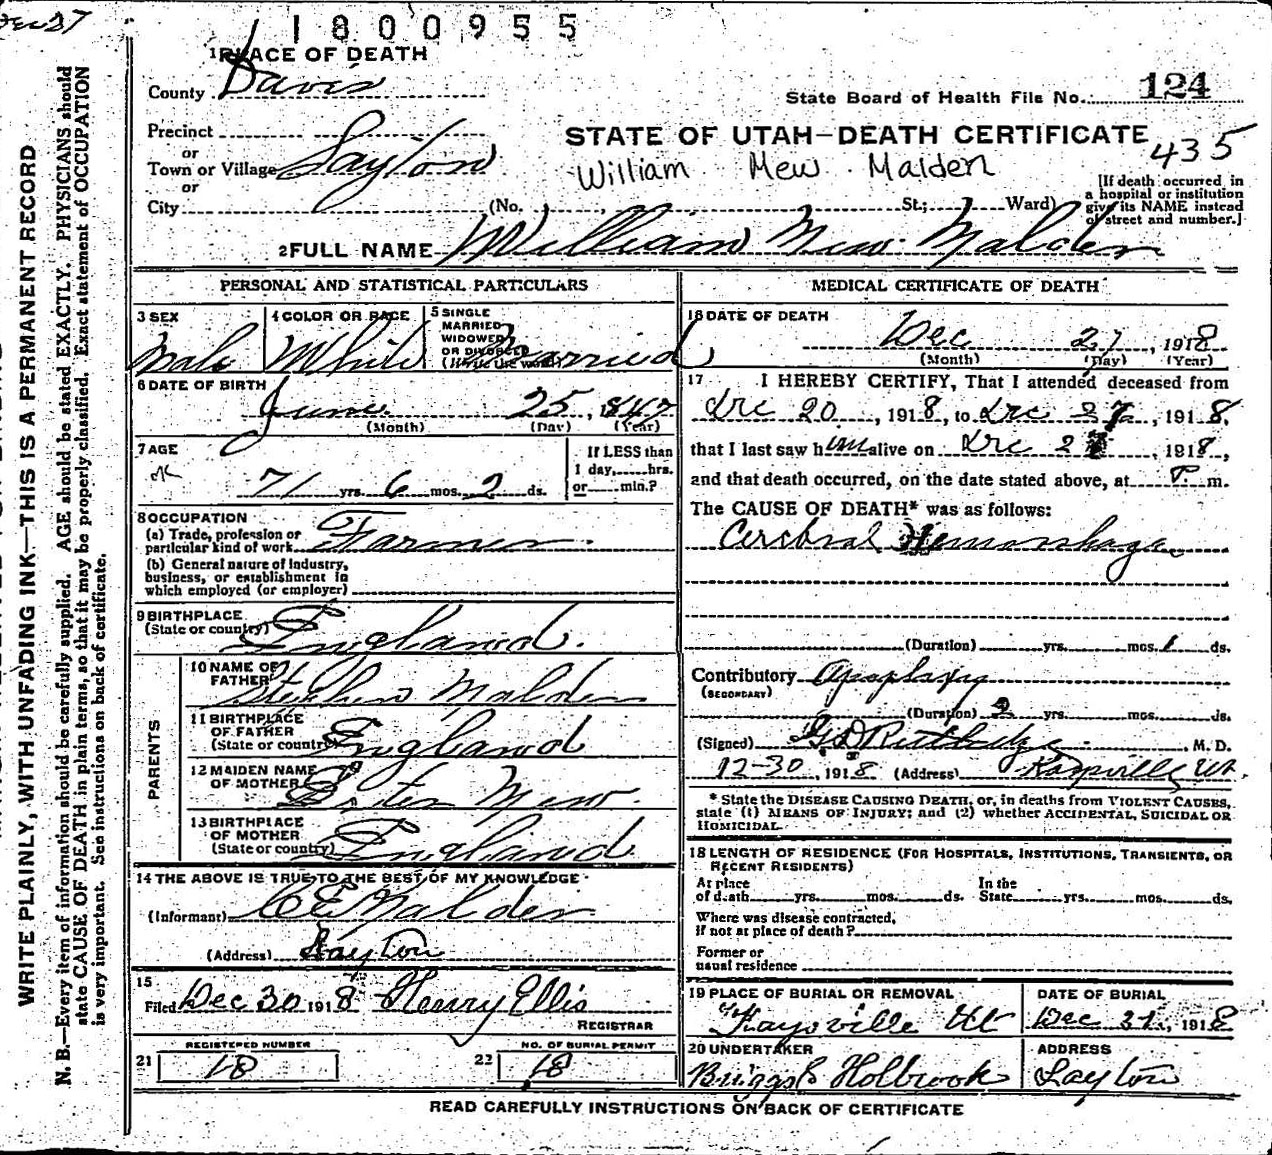 1800955
1 PLACE OF DEATH
County Davis
State Board of Health File No. 124
Precinct
or
Town or Village Layton
or
City (No. St.; Ward)
STATE OF UTAH—DEATH CERTIFICATE
435
William Mew Malden
[If death occurred in
a hospital or institution
give its NAME instead
of street and number.]
2 FULL NAME William Mew Malden
PERSONAL AND STATISTICAL PARTICULARS
3 SEX Male
4 COLOR OR RACE White
5 SINGLE
MARRIED
WIDOWED
OR DIVORCED
(Write the word) Married
6 DATE OF BIRTH
June 25, 1847
(Month) (Day) (Year)
7 AGE
71 yrs. 6 mos. 2 ds.
If LESS than
1 day, hrs.
or min.?
8 OCCUPATION
(a) Trade, profession or
particular kind of work Farmer
(b) General nature of industry,
business, or establishment in
which employed (or employer)
9 BIRTHPLACE
(State or country) England.
PARENTS
10 NAME OF
FATHER Stephen Malden
11 BIRTHPLACE
OF FATHER
(State or country) England
12 MAIDEN NAME
OF MOTHER Mew.
13 BIRTHPLACE
OF MOTHER
(State or country) England
14 THE ABOVE IS TRUE TO THE BEST OF MY KNOWLEDGE
(Informant) Malden
(Address) Layton
15
Filed Dec 30 1918 Henry Ellis
REGISTRAR
21 REGISTERED NUMBER 18
22 NO. OF BURIAL PERMIT 18
MEDICAL CERTIFICATE OF DEATH
16 DATE OF DEATH
Dec 27, 1918
(Month) (Day) (Year)
17 I HEREBY CERTIFY, That I attended deceased from
Dec 20, 1918, to Dec 27, 1918,
that I last saw him alive on Dec 27, 1918,
and that death occurred, on the date stated above, at P. m.
The CAUSE OF DEATH* was as follows:
Cerebral Hemorrhage
(Duration) yrs. mos. 1 ds.
Contributory Apoplexy
(SECONDARY)
(Duration) 2 yrs. mos. ds.
(Signed) G D Rutledge M. D.
12-30, 1918 (Address) Kaysville Ut.
* State the DISEASE CAUSING DEATH, or, in deaths from VIOLENT CAUSES,
state (1) MEANS OF INJURY; and (2) whether ACCIDENTAL, SUICIDAL OR
HOMICIDAL.
18 LENGTH OF RESIDENCE (FOR HOSPITALS, INSTITUTIONS, TRANSIENTS, OR
RECENT RESIDENTS)
At place
of death yrs. mos. ds.
In the
State yrs. mos. ds.
Where was disease contracted,
if not at place of death?
Former or
usual residence
19 PLACE OF BURIAL OR REMOVAL
Kaysville Ut
DATE OF BURIAL
Dec 31, 1918
20 UNDERTAKER
Briggs & Holbrook
ADDRESS
Layton
READ CAREFULLY INSTRUCTIONS ON BACK OF CERTIFICATE
WRITE PLAINLY, WITH UNFADING INK—THIS IS A PERMANENT RECORD
N. B.—Every item of information should be carefully supplied. AGE should be stated EXACTLY. PHYSICIANS should
state CAUSE OF DEATH in plain terms, so that it may be properly classified. Exact statement of OCCUPATION
is very important. See instructions on back of certificate.